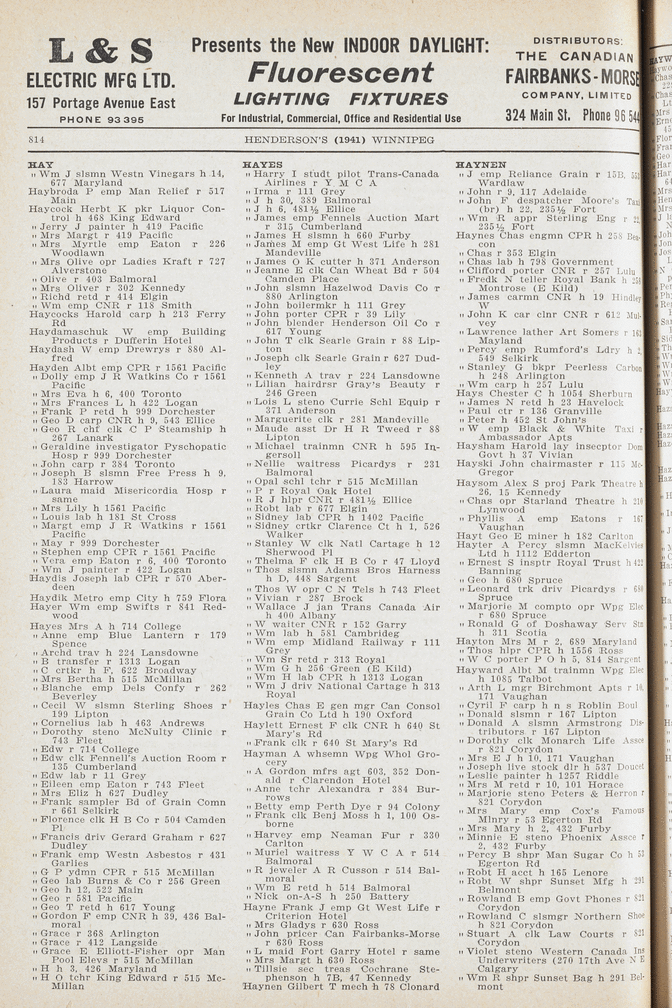 L & S
ELECTRIC MFG LTD.
157 Portage Avenue East
PHONE 93 395
Presents the New INDOOR DAYLIGHT:
Fluorescent
LIGHTING FIXTURES
For Industrial, Commercial, Office and Residential Use
DISTRIBUTORS:
THE CANADIAN
FAIRBANKS-MORSE
COMPANY, LIMITED
324 Main St. Phone 96 544
814
HENDERSON'S (1941) WINNIPEG
HAY
" Wm J slsmn Westn Vinegars h 14,
677 Maryland
Haybroda P emp Man Relief r 517
Main
Haycock Herbt K pkr Liquor Con-
trol h 468 King Edward
" Jerry J painter h 419 Pacific
" Mrs Margt r 419 Pacific
" Mrs Myrtle emp Eaton r 226
Woodlawn
" Mrs Olive opr Ladies Kraft r 727
Alverstone
" Olive r 403 Balmoral
" Mrs Oliver r 302 Kennedy
" Richd retd r 414 Elgin
" Wm emp CNR r 118 Smith
Haycocks Harold carp h 213 Ferry
Rd
Haydamaschuk W emp Building
Products r Dufferin Hotel
Haydash W emp Drewrys r 880 Al-
fred
Hayden Albt emp CPR r 1561 Pacific
" Dolly emp J R Watkins Co r 1561
Pacific
" Mrs Eva h 6, 400 Toronto
" Mrs Frances L h 422 Logan
" Frank P retd h 999 Dorchester
" Geo D carp CNR h 9, 543 Ellice
" Geo R chf clk C P Steamship h
267 Lanark
" Geraldine investigator Pyschopathic
Hosp r 999 Dorchester
" John carp r 384 Toronto
" Joseph B slsmn Free Press h 9,
183 Harrow
" Laura maid Misericordia Hosp r
same
" Mrs Lily h 1561 Pacific
" Louis lab h 181 St Cross
" Margt emp J R Watkins r 1561
Pacific
" May r 999 Dorchester
" Stephen emp CPR r 1561 Pacific
" Vera emp Eaton r 6, 400 Toronto
" Wm J painter r 422 Logan
Haydis Joseph lab CPR r 570 Aber-
deen
Haydik Metro emp City h 759 Flora
Hayer Wm emp Swifts r 841 Red-
wood
Hayes Mrs A h 714 College
" Anne emp Blue Lantern r 179
Spence
" Archd trav h 224 Lansdowne
" B transfer r 1313 Logan
" C crtkr h F, 622 Broadway
" Mrs Bertha h 515 McMillan
" Blanche emp Dels Confy r 262
Beverley
" Cecil W slsmn Sterling Shoes r
199 Lipton
" Cornelius lab h 463 Andrews
" Dorothy steno McNulty Clinic r
743 Fleet
" Edw r 714 College
" Edw clk Fennell's Auction Room r
135 Cumberland
" Edw lab r 11 Grey
" Eileen emp Eaton r 743 Fleet
" Mrs Eliz h 627 Dudley
" Frank sampler Bd of Grain Comn
r 661 Selkirk
" Florence clk H B Co r 504 Camden
Pl
" Francis driv Gerard Graham r 627
Dudley
" Frank emp Westn Asbestos r 431
Garlies
" G P ydmn CPR r 515 McMillan
" Geo lab Burns & Co r 256 Green
" Geo h 12, 522 Main
" Geo r 581 Pacific
" Geo T retd h 617 Young
" Gordon F emp CNR h 39, 436 Bal-
moral
" Grace r 368 Arlington
" Grace r 412 Langside
" Grace E Elliott-Fisher opr Man
Pool Elevs r 515 McMillan
" H h 3, 426 Maryland
" H O tchr King Edward r 515 Mc-
Millan
HAYES
" Harry I studt pilot Trans-Canada
Airlines r Y M C A
" Irma r 111 Grey
" J h 30, 389 Balmoral
" J h 6, 481½ Ellice
" James emp Fennels Auction Mart
r 315 Cumberland
" James H slsmn h 660 Furby
" James M emp Gt West Life h 281
Mandeville
" James O K cutter h 371 Anderson
" Jeanne E clk Can Wheat Bd r 504
Camden Place
" John slsmn Hazelwod Davis Co r
880 Arlington
" John boilermkr h 111 Grey
" John porter CPR r 39 Lily
" John blender Henderson Oil Co r
617 Young
" John T clk Searle Grain r 88 Lip-
ton
" Joseph clk Searle Grain r 627 Dud-
ley
" Kenneth A trav r 224 Lansdowne
" Lilian hairdrsr Gray's Beauty r
246 Green
" Lois L steno Currie Schl Equip r
371 Anderson
" Marguerite clk r 281 Mandeville
" Maude asst Dr H R Tweed r 88
Lipton
" Michael trainmn CNR h 595 In-
gersoll
" Nellie waitress Picardys r 231
Balmoral
" Opal schl tchr r 515 McMillan
" P r Royal Oak Hotel
" R J hlpr CNR r 481½ Ellice
" Robt lab r 677 Elgin
" Sidney lab CPR h 1402 Pacific
" Sidney crtkr Clarence Ct h 1, 526
Walker
" Stanley W clk Natl Cartage h 12
Sherwood Pl
" Thelma F clk H B Co r 47 Lloyd
" Thos slsmn Adams Bros Harness
h D, 448 Sargent
" Thos W opr C N Tels h 743 Fleet
" Vivian r 287 Brock
" Wallace J jan Trans Canada Air
h 400 Albany
" W waiter CNR r 152 Garry
" Wm lab h 581 Cambrideg
" Wm emp Midland Railway r 111
Grey
" Wm Sr retd r 313 Royal
" Wm G h 256 Green (E Kild)
" Wm H lab CPR h 1313 Logan
" Wm J driv National Cartage h 313
Royal
Hayles Chas E gen mgr Can Consol
Grain Co Ltd h 190 Oxford
Haylett Ernest F clk CNR h 640 St
Mary's Rd
" Frank clk r 640 St Mary's Rd
Hayman A whsemn Wpg Whol Gro-
cery
" A Gordon mfrs agt 603, 352 Don-
ald r Clarendon Hotel
" Anne tchr Alexandra r 384 Bur-
rows
" Betty emp Perth Dye r 94 Colony
" Frank clk Benj Moss h 1, 100 Os-
borne
" Harvey emp Neaman Fur r 330
Carlton
" Muriel waitress Y W C A r 514
Balmoral
" R jeweler A R Cusson r 514 Bal-
moral
" Wm E retd h 514 Balmoral
" Nick on-A-S h 250 Battery
Hayne Frank J emp Gt West Life r
Criterion Hotel
" Mrs Gladys r 630 Ross
" John pricer Can Fairbanks-Morse
r 630 Ross
" L maid Fort Garry Hotel r same
" Mrs Margt h 630 Ross
" Tillsie sec treas Cochrane Ste-
phenson h 7B, 47 Kennedy
Haynen Gilbert T mech h 78 Clonard
HAYNEN
" J emp Reliance Grain r 15B, 551
Wardlaw
" John r 9, 117 Adelaide
" John F despatcher Moore's Taxi
(br) h 22, 235½ Fort
" Wm R appr Sterling Eng r 22,
235½ Fort
Haynes Chas engmn CPR h 258 Bea-
con
" Chas r 353 Elgin
" Chas lab h 798 Government
" Clifford porter CNR r 257 Lulu
" Fredk N teller Royal Bank h 258
Montrose (E Kild)
" James carmn CNR h 19 Hindley
W
" John K car clnr CNR r 612 Mul-
vey
" Lawrence lather Art Somers r 163
Mayland
" Percy emp Rumford's Ldry h 2,
549 Selkirk
" Stanley G bkpr Peerless Carbon
h 248 Arlington
" Wm carp h 257 Lulu
Hays Chester C h 1054 Sherburn
" James N retd h 23 Havelock
" Paul ctr r 136 Granville
" Peter h 452 St John's
" W emp Black & White Taxi r
Ambassador Apts
Haysham Harold lay insepctor Dom
Govt h 37 Vivian
Hayski John chairmaster r 115 Mc-
Gregor
Haysom Alex S proj Park Theatre h
26, 15 Kennedy
" Chas opr Starland Theatre h 210
Lynwood
" Phyllis A emp Eatons r 167
Vaughan
Hayt Geo E miner h 182 Carlton
Hayter A Percy slsmn MacKelvies
Ltd h 1112 Edderton
" Ernest S insptr Royal Trust h 422
Banning
" Geo h 680 Spruce
" Leonard trk driv Picardys r 680
Spruce
" Marjorie M compto opr Wpg Elec
r 680 Spruce
" Ronald G of Doshaway Serv Stn
h 311 Scotia
Hayton Mrs M r 2, 689 Maryland
" Thos hlpr CPR h 1556 Ross
" W C porter P O h 5, 814 Sargent
Hayward Albt M trainmn Wpg Elec
h 1085 Talbot
" Arth L mgr Birchmont Apts r 10,
171 Vaughan
" Cyril F carp h n s Roblin Boul
" Donald slsmn r 167 Lipton
" Donald A slsmn Armstrong Dis-
tributors r 167 Lipton
" Dorothy clk Monarch Life Assce
r 821 Corydon
" Mrs E J h 10, 171 Vaughan
" Joseph live stock dlr h 537 Doucet
" Leslie painter h 1257 Riddle
" Mrs M retd r 10, 101 Horace
" Marjorie steno Peters & Herron r
821 Corydon
" Mrs Mary emp Cox's Famous
Mlnry r 53 Egerton Rd
" Mrs Mary h 2, 432 Furby
" Minnie E steno Phoenix Assce r
2, 432 Furby
" Percy B shpr Man Sugar Co h 53
Egerton Rd
" Robt H acct h 165 Lenore
" Robt W shpr Sunset Mfg h 291
Belmont
" Rowland B emp Govt Phones r 821
Corydon
" Rowland C slsmgr Northern Shoe
h 821 Corydon
" Stuart A clk Law Courts r 821
Corydon
" Violet steno Western Canada Ins
Underwriters (270 17th Ave N E
Calgary
" Wm R shpr Sunset Bag h 291 Bel-
mont